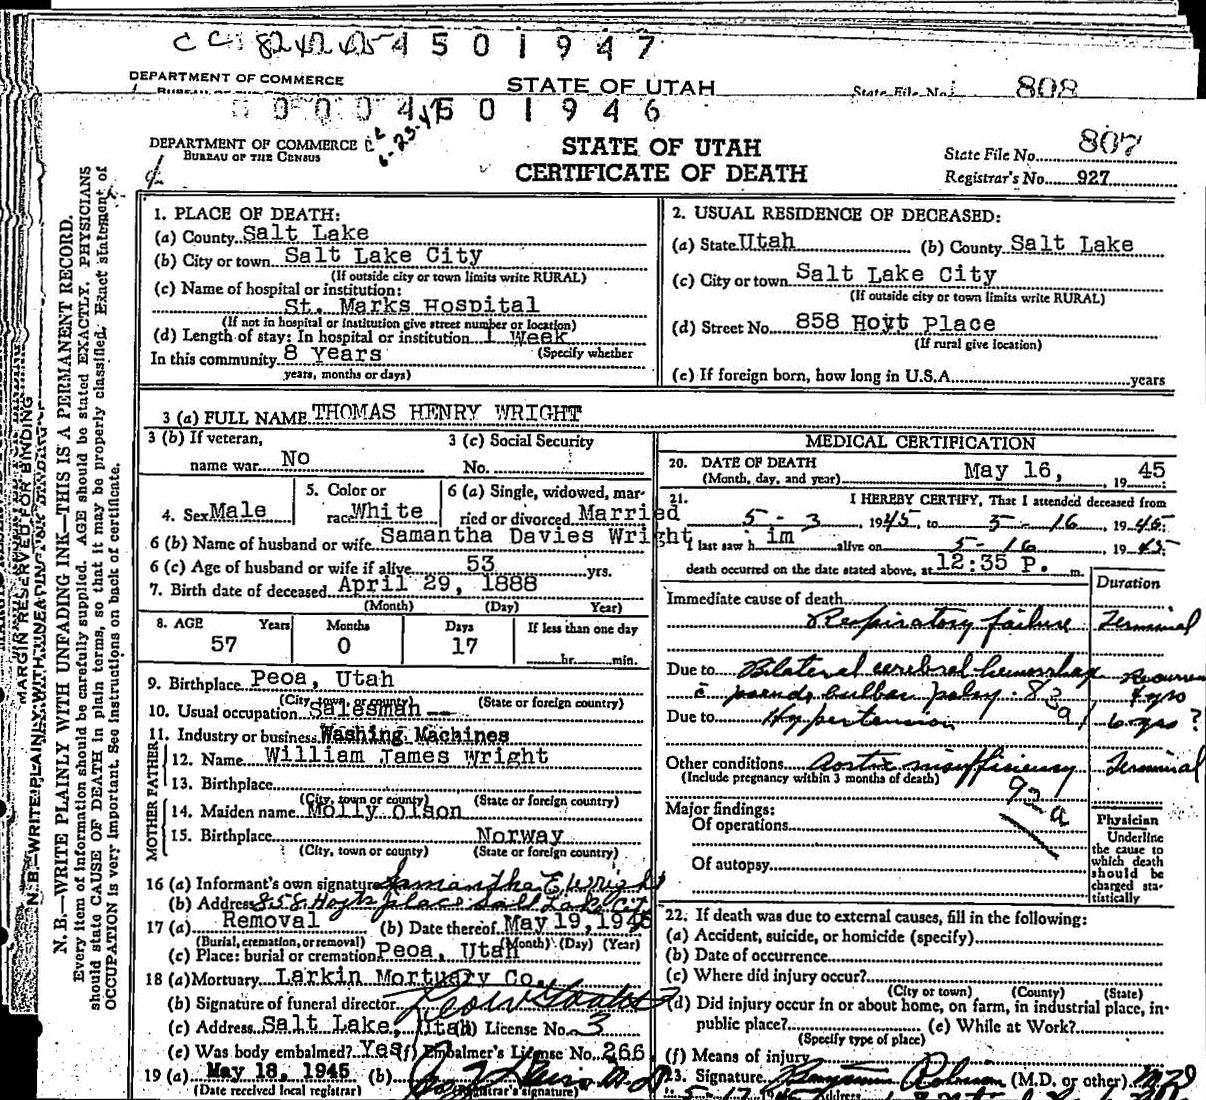 4501947
DEPARTMENT OF COMMERCE
STATE OF UTAH
State File No. 808
4501946
6-23-45
DEPARTMENT OF COMMERCE
BUREAU OF THE CENSUS
STATE OF UTAH
CERTIFICATE OF DEATH
State File No. 807
Registrar's No. 927
MARGIN RESERVED FOR BINDING
N. B.—WRITE PLAINLY WITH UNFADING INK—THIS IS A PERMANENT RECORD.
Every item of information should be carefully supplied. AGE should be stated EXACTLY. PHYSICIANS
should state CAUSE OF DEATH in plain terms, so that it may be properly classified. Exact statement of
OCCUPATION is very important. See instructions on back of certificate.
1. PLACE OF DEATH:
(a) County Salt Lake
(b) City or town Salt Lake City
(If outside city or town limits write RURAL)
(c) Name of hospital or institution:
St. Marks Hospital
(If not in hospital or institution give street number or location)
(d) Length of stay: In hospital or institution 1 Week
(Specify whether
In this community 8 Years
years, months or days)
2. USUAL RESIDENCE OF DECEASED:
(a) State Utah (b) County Salt Lake
(c) City or town Salt Lake City
(If outside city or town limits write RURAL)
(d) Street No. 858 Hoyt Place
(If rural give location)
(e) If foreign born, how long in U.S.A. years
3 (a) FULL NAME THOMAS HENRY WRIGHT
3 (b) If veteran,
name war No
3 (c) Social Security
No.
4. Sex Male
5. Color or
race White
6 (a) Single, widowed, mar-
ried or divorced Married
6 (b) Name of husband or wife Samantha Davies Wright
6 (c) Age of husband or wife if alive 53 yrs.
7. Birth date of deceased April 29, 1888
(Month) (Day) Year)
8. AGE Years Months Days If less than one day
57 0 17 hr. min.
9. Birthplace Peoa, Utah
(City, town or county) (State or foreign country)
10. Usual occupation Salesman
11. Industry or business Washing Machines
FATHER
12. Name William James Wright
13. Birthplace
(City, town or county) (State or foreign country)
MOTHER
14. Maiden name Molly Olson
15. Birthplace Norway
(City, town or county) (State or foreign country)
16 (a) Informant's own signature Samantha E. Wright
(b) Address 858 Hoyt place Salt Lake City
17 (a) Removal (b) Date thereof May 19, 1945
(Burial, cremation, or removal) (Month) (Day) (Year)
(c) Place: burial or cremation Peoa, Utah
18 (a) Mortuary Larkin Mortuary Co.
(b) Signature of funeral director
(c) Address Salt Lake, Utah (d) License No. 3
(e) Was body embalmed? Yes (f) Embalmer's License No. 266
19 (a) May 18, 1945 (b)
(Date received local registrar) (Registrar's signature)
MEDICAL CERTIFICATION
20. DATE OF DEATH
(Month, day, and year) May 16, 19 45
21. I HEREBY CERTIFY, That I attended deceased from
5-3, 1945, to 5-16, 1945.
I last saw h im alive on 5-16 1945
death occurred on the date stated above, at 12:35 P. m.
Duration
Immediate cause of death
Respiratory failure Terminal
Due to Bilateral cerebral hemorrhage
c̄ pseudo bulbar palsy 4 yrs
83a
Due to Hypertension 6 yrs ?
Other conditions Aortic insufficiency Terminal
(Include pregnancy within 3 months of death)
92a
Major findings:
Of operations
Of autopsy
Physician
Underline
the cause to
which death
should be
charged sta-
tistically
22. If death was due to external causes, fill in the following:
(a) Accident, suicide, or homicide (specify)
(b) Date of occurrence
(c) Where did injury occur?
(City or town) (County) (State)
(d) Did injury occur in or about home, on farm, in industrial place, in-
public place? (e) While at Work?
(Specify type of place)
(f) Means of injury
23. Signature (M.D. or other) MD
5-17-1945 Address